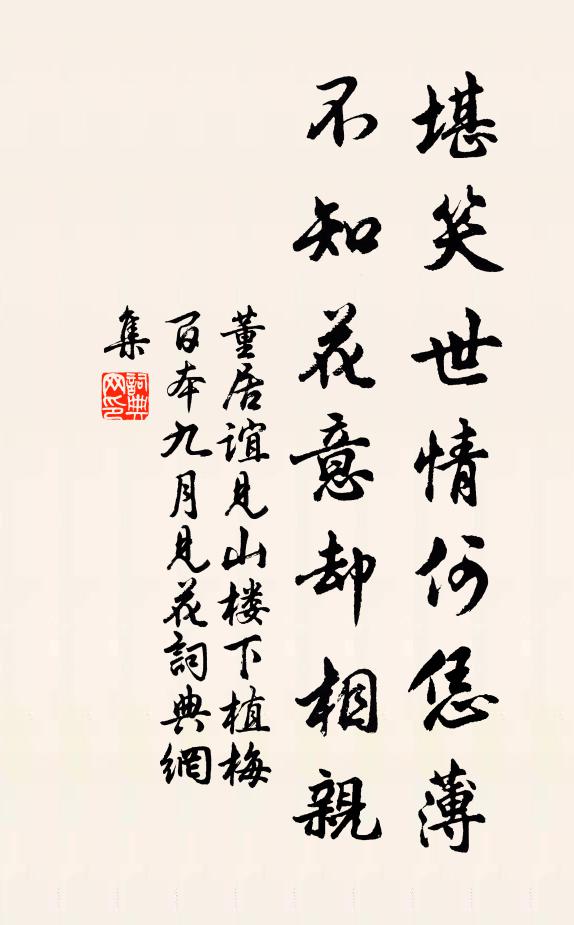 堪笑世情何恁薄
不知花意却相親
董居谊見山楼下植梅
百本九月見花詞典網
集
詞典
网印